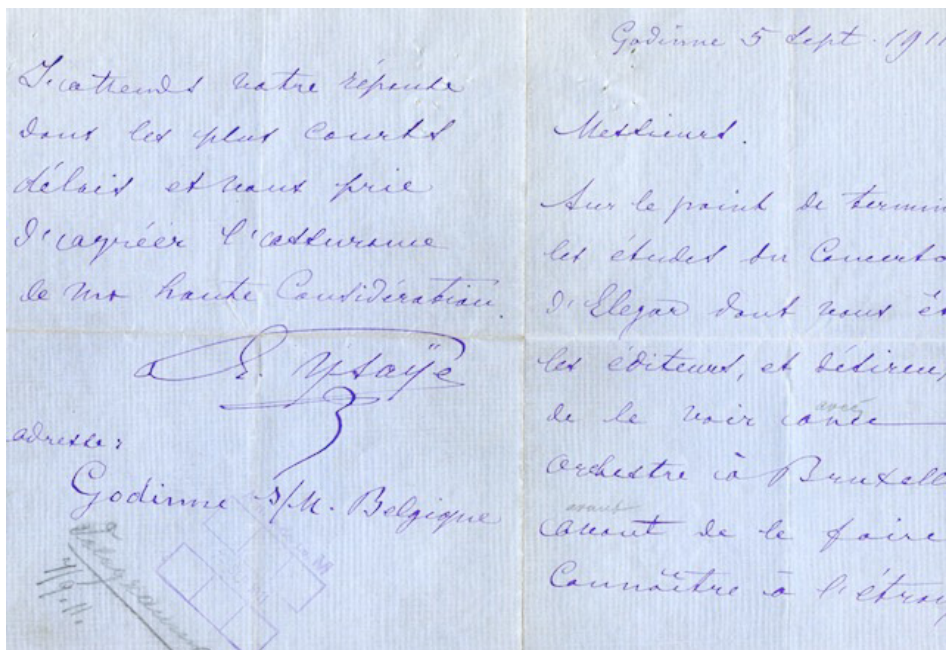 J'attends votre réponse
dans les plus courts
délais et vous prie
d'agréer l'assurance
de ma haute Considération.
E. Ysaÿe
adresse:
Godinne s/M. Belgique
Godinne 5 Sept. 191
Messieurs.
Sur le point de termin
les études du Concerto
d'Elegar dont vous êt
les éditeurs, et désireux
avec
de le voir avec
Orchestre à Bruxell
avant
avant de le faire
Connaître à l'étran